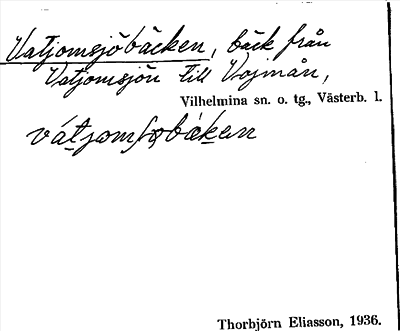 Vatjomsjöbäcken, bäck från
Vatjomsjön till Vojmån,
Vilhelmina sn. o. tg., Västerb. l.
vátjomʃøbäkan
Thorbjörn Eliasson, 1936.